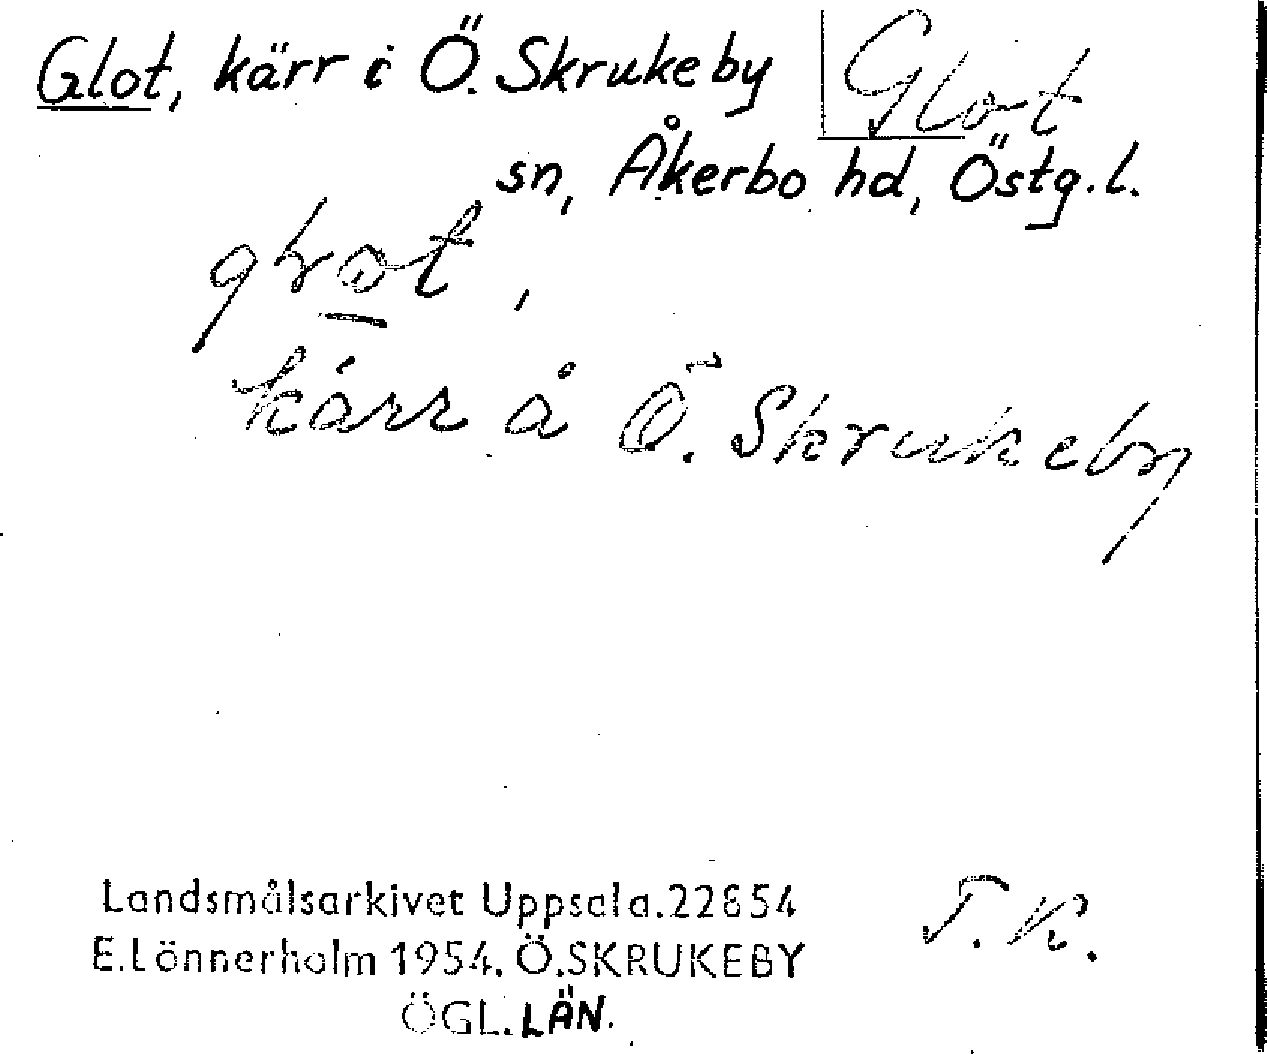 Glot, kärr i Ö. Skrukeby
Glot
sn, Åkerbo hd, Östg.l.
kärr å Ö. Skrukeby
Landsmålsarkivet Uppsala. 22654
E. Lönnerholm 1954. Ö. SKRUKEBY
ÖGL. LÄN.
T. K.